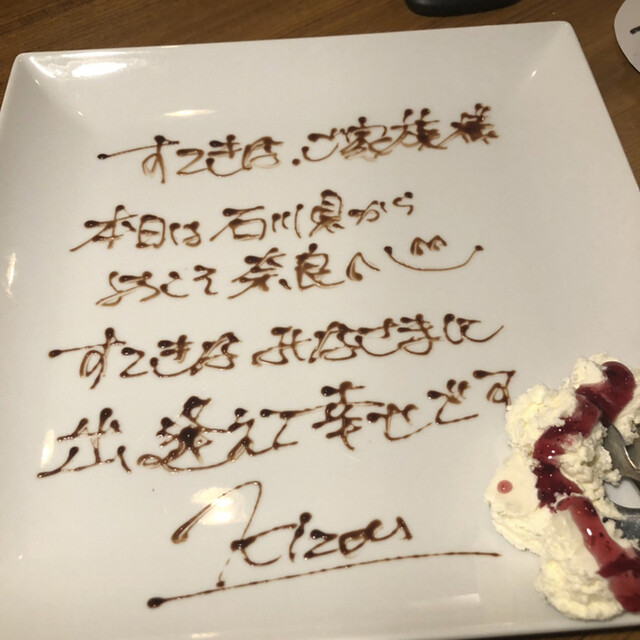 すてきな、ご家族様
本日は石川県から
ようこそ奈良へ
すてきな みなさまに
出逢えて幸せです